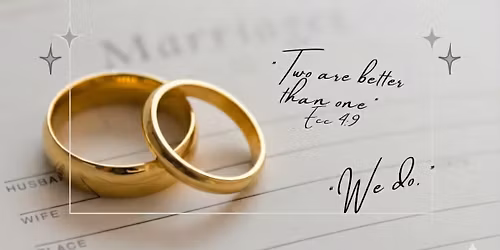 Marriages
"Two are better
than one"
Ecc 4:9
"We do."
HUSBA
WIFE
PLACE